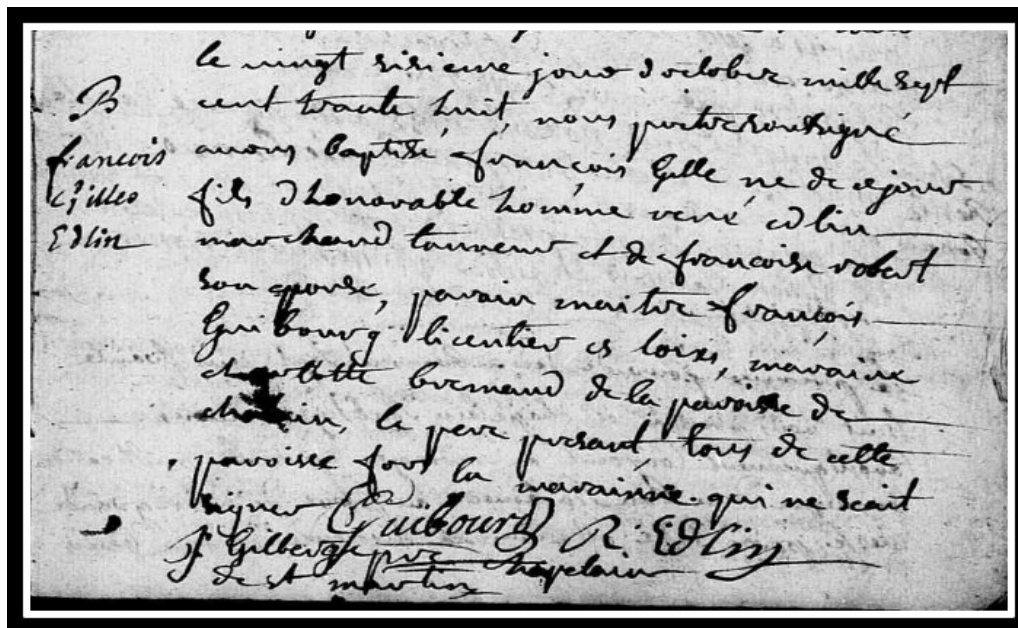 le vingt sisieme jour d'octobre mille sept
B
cent trante huit, nous pretre soussigné
francois
avons baptisé françois Gille ne de ce jour
Gilles
fils d'honorable homme rené edlin
Edlin
marchand tanneur et de francoise robert
son epouse, parain maitre françois
Guibourg licentier es loix, maraine
charlotte bremaud de la paroisse de
le pere presant, tous de cette
paroisse fors la marainne qui ne scait
signer Guibourg R. Edlin
Gilberge pre chapelain
de st martin